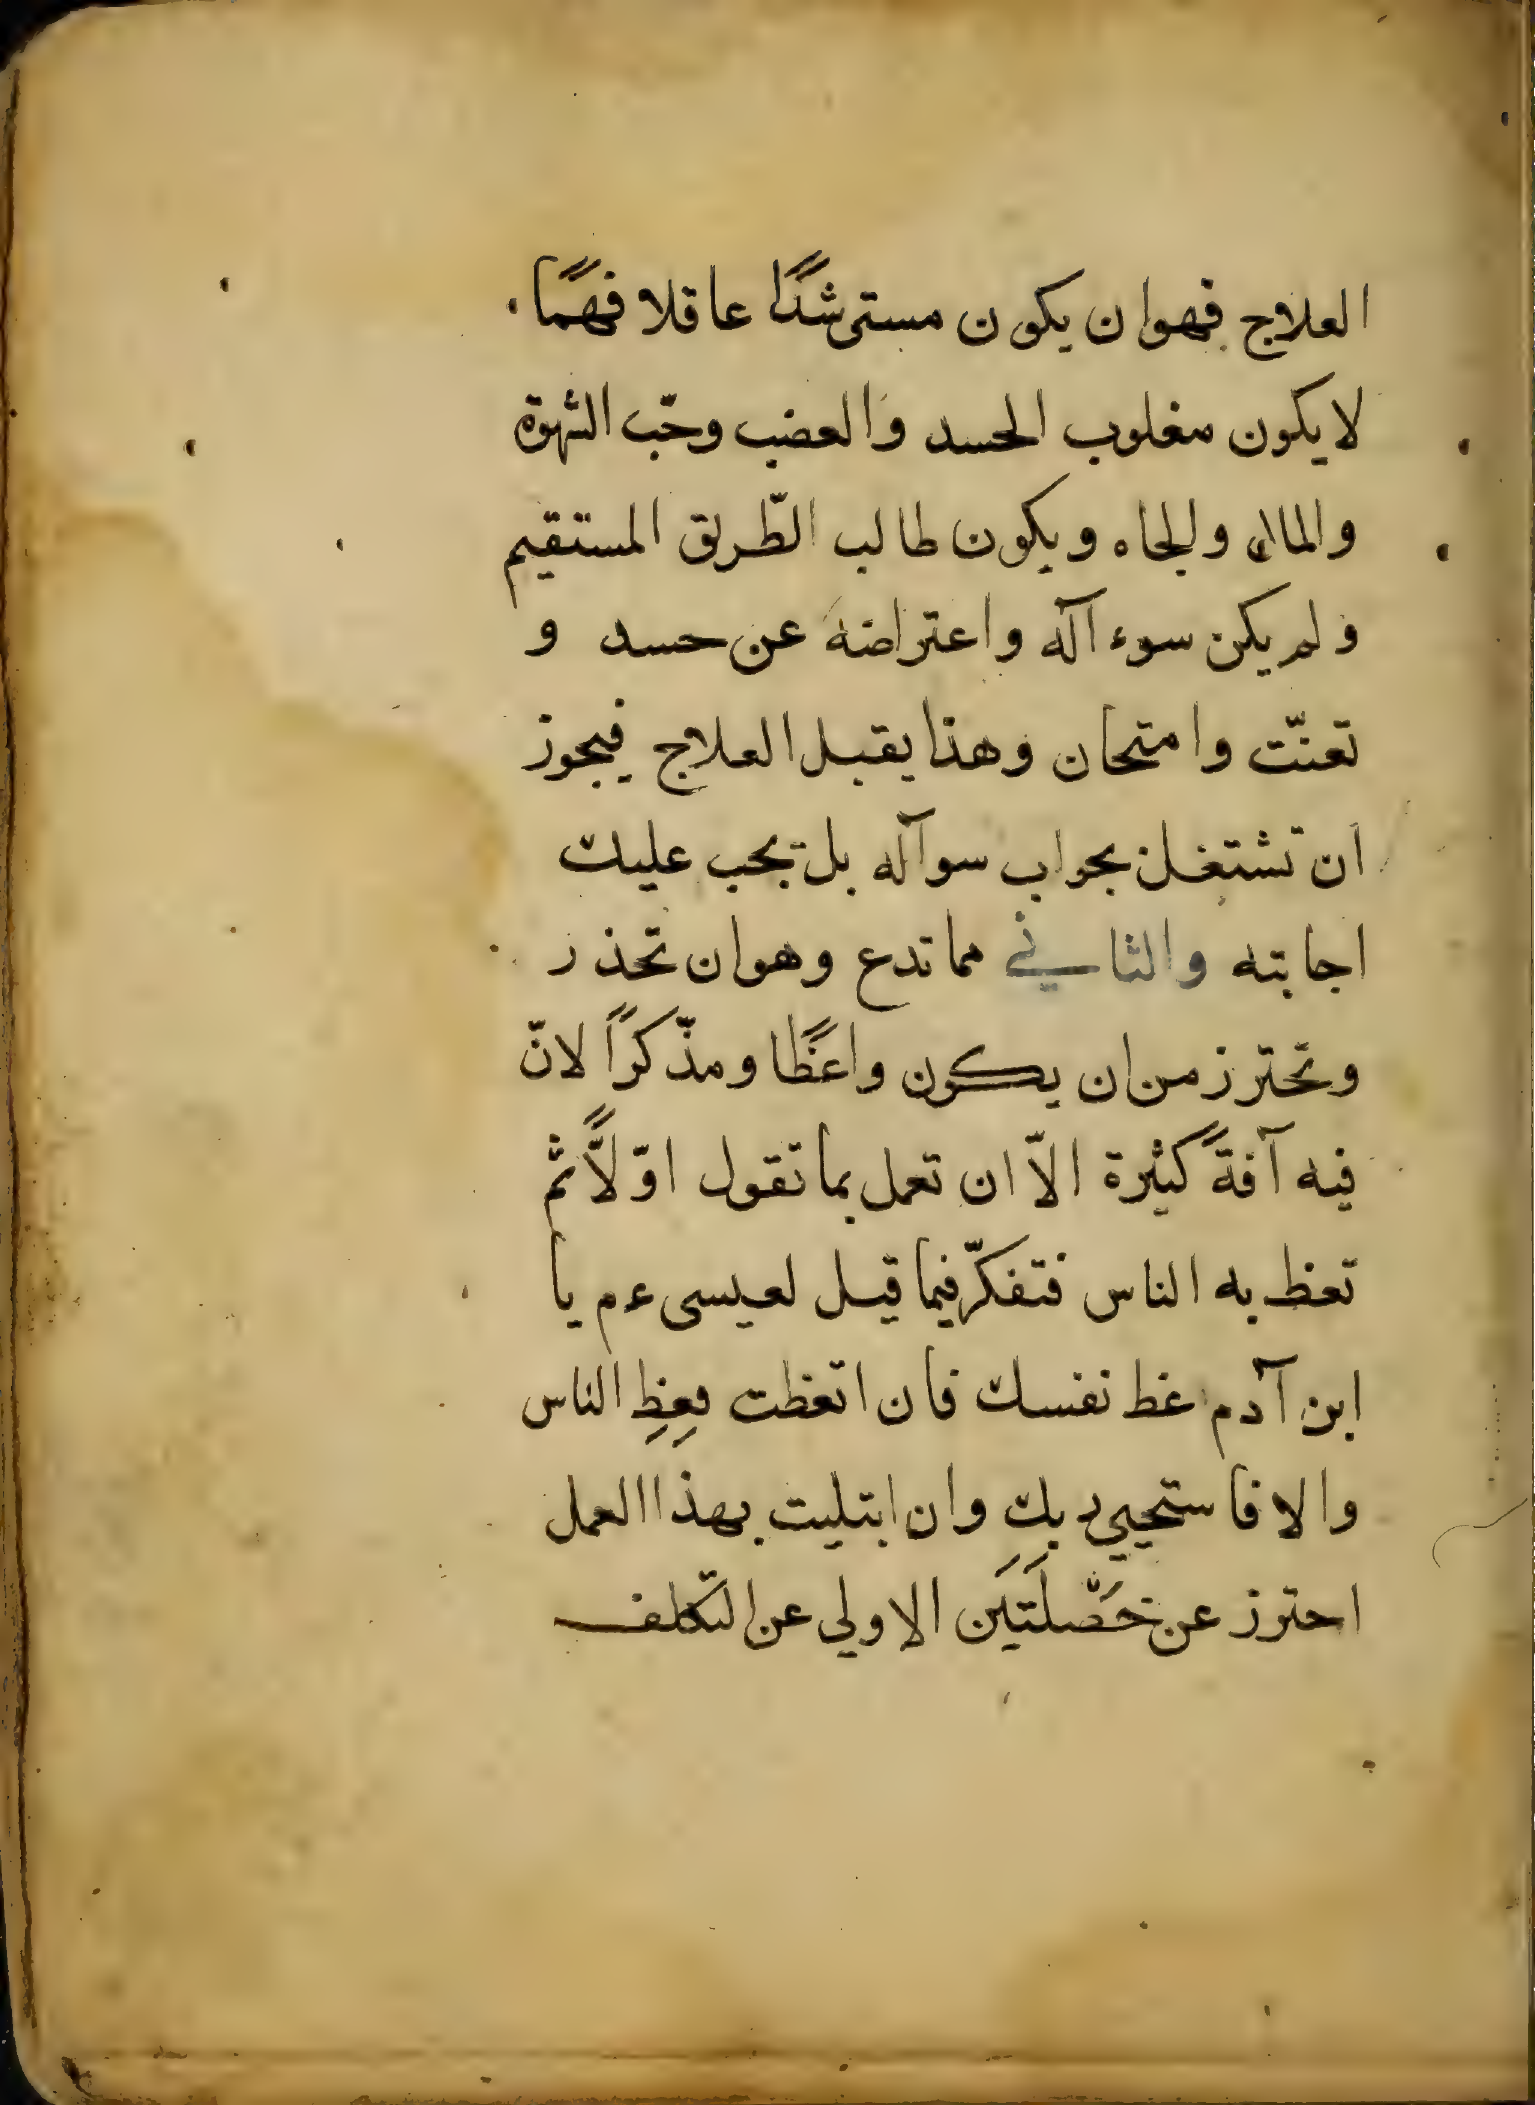 العلاج فهو ان يكون مسترشدًا عاقلا فهمًا
لا يكون مغلوب الحسد والعضب وحبّ الشهوة
والمال والجاه ويكون طالب الطّريق المستقيم
ولم يكن سوءآله واعتراضه عن حسد و
تعنّت وامتحان وهذا يقبل العلاج فيجوز
ان تشتغل بجواب سوآله بل يجب عليك
اجابته والثاني مما تدع وهو ان تحذر
وتحترز من ان يكون واعظًا ومذّكرًا لانّ
فيه آفةً كثيرة الاّ ان تعمل بما تقول اوّلاً ثم
تعظ به الناس فتفكّر فيما قيل لعيسى ءم يا
ابن آدم عظ نفسك فان اتعظت فعِظِ الناس
والا فاستحيي ربك وان ابتليت بهذا العمل
احترز عن خَصْلَتَيَن الاولي عن التّكلف